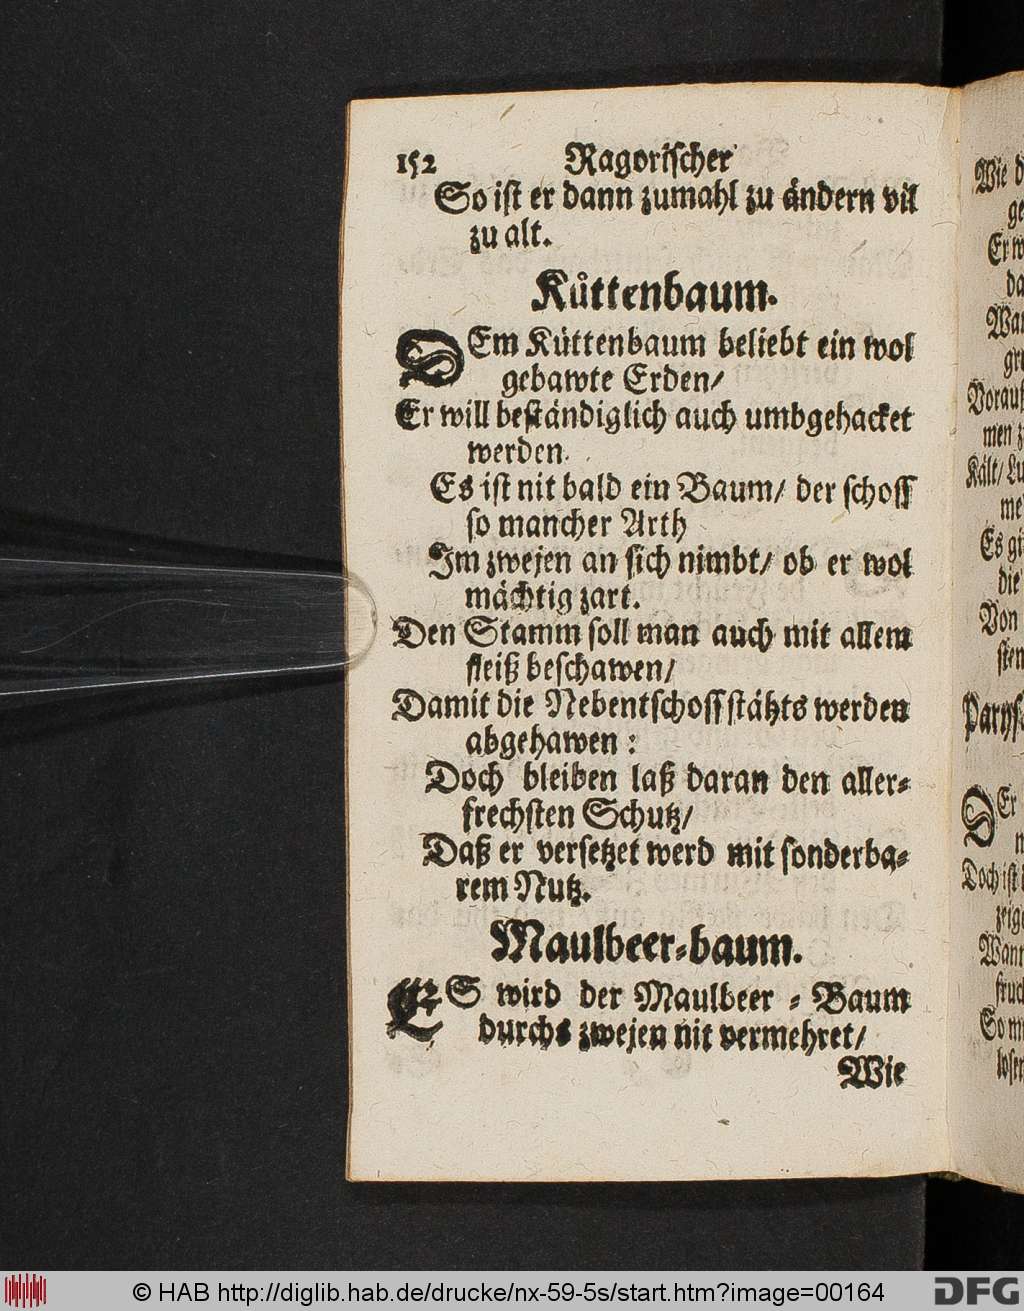 152 Ragorischer
So ist er dann zumahl zu ändern vil
zu alt.
Kůttenbaum.
DEm Küttenbaum beliebt ein wol
gebawte Erden/
Er will beständiglich auch umbgehacket
werden.
Es ist nit bald ein Baum/ der schoss
so mancher Arth
Im zwejen an sich nimbt/ ob er wol
mächtig zart.
Den Stamm soll man auch mit allem
fleiß beschawen/
Damit die Nebentschoss stähts werden
abgehawen:
Doch bleiben laß daran den aller-
frechsten Schutz/
Daß er versetzet werd mit sonderba-
rem Nutz.
Maulbeer-baum.
ES wird der Maulbeer - Baum
durchs zwejen nit vermehret/
Wie
Wie d
ge
Er w
da
Wan
gr
Vorauß
men z
Kält/ Lu
me
Es gi
die
Von
sten
Er
Doch ist
zeig
Wann
fruc
So m
loser
© HAB http://diglib.hab.de/drucke/nx-59-5s/start.htm?image=00164
DFG